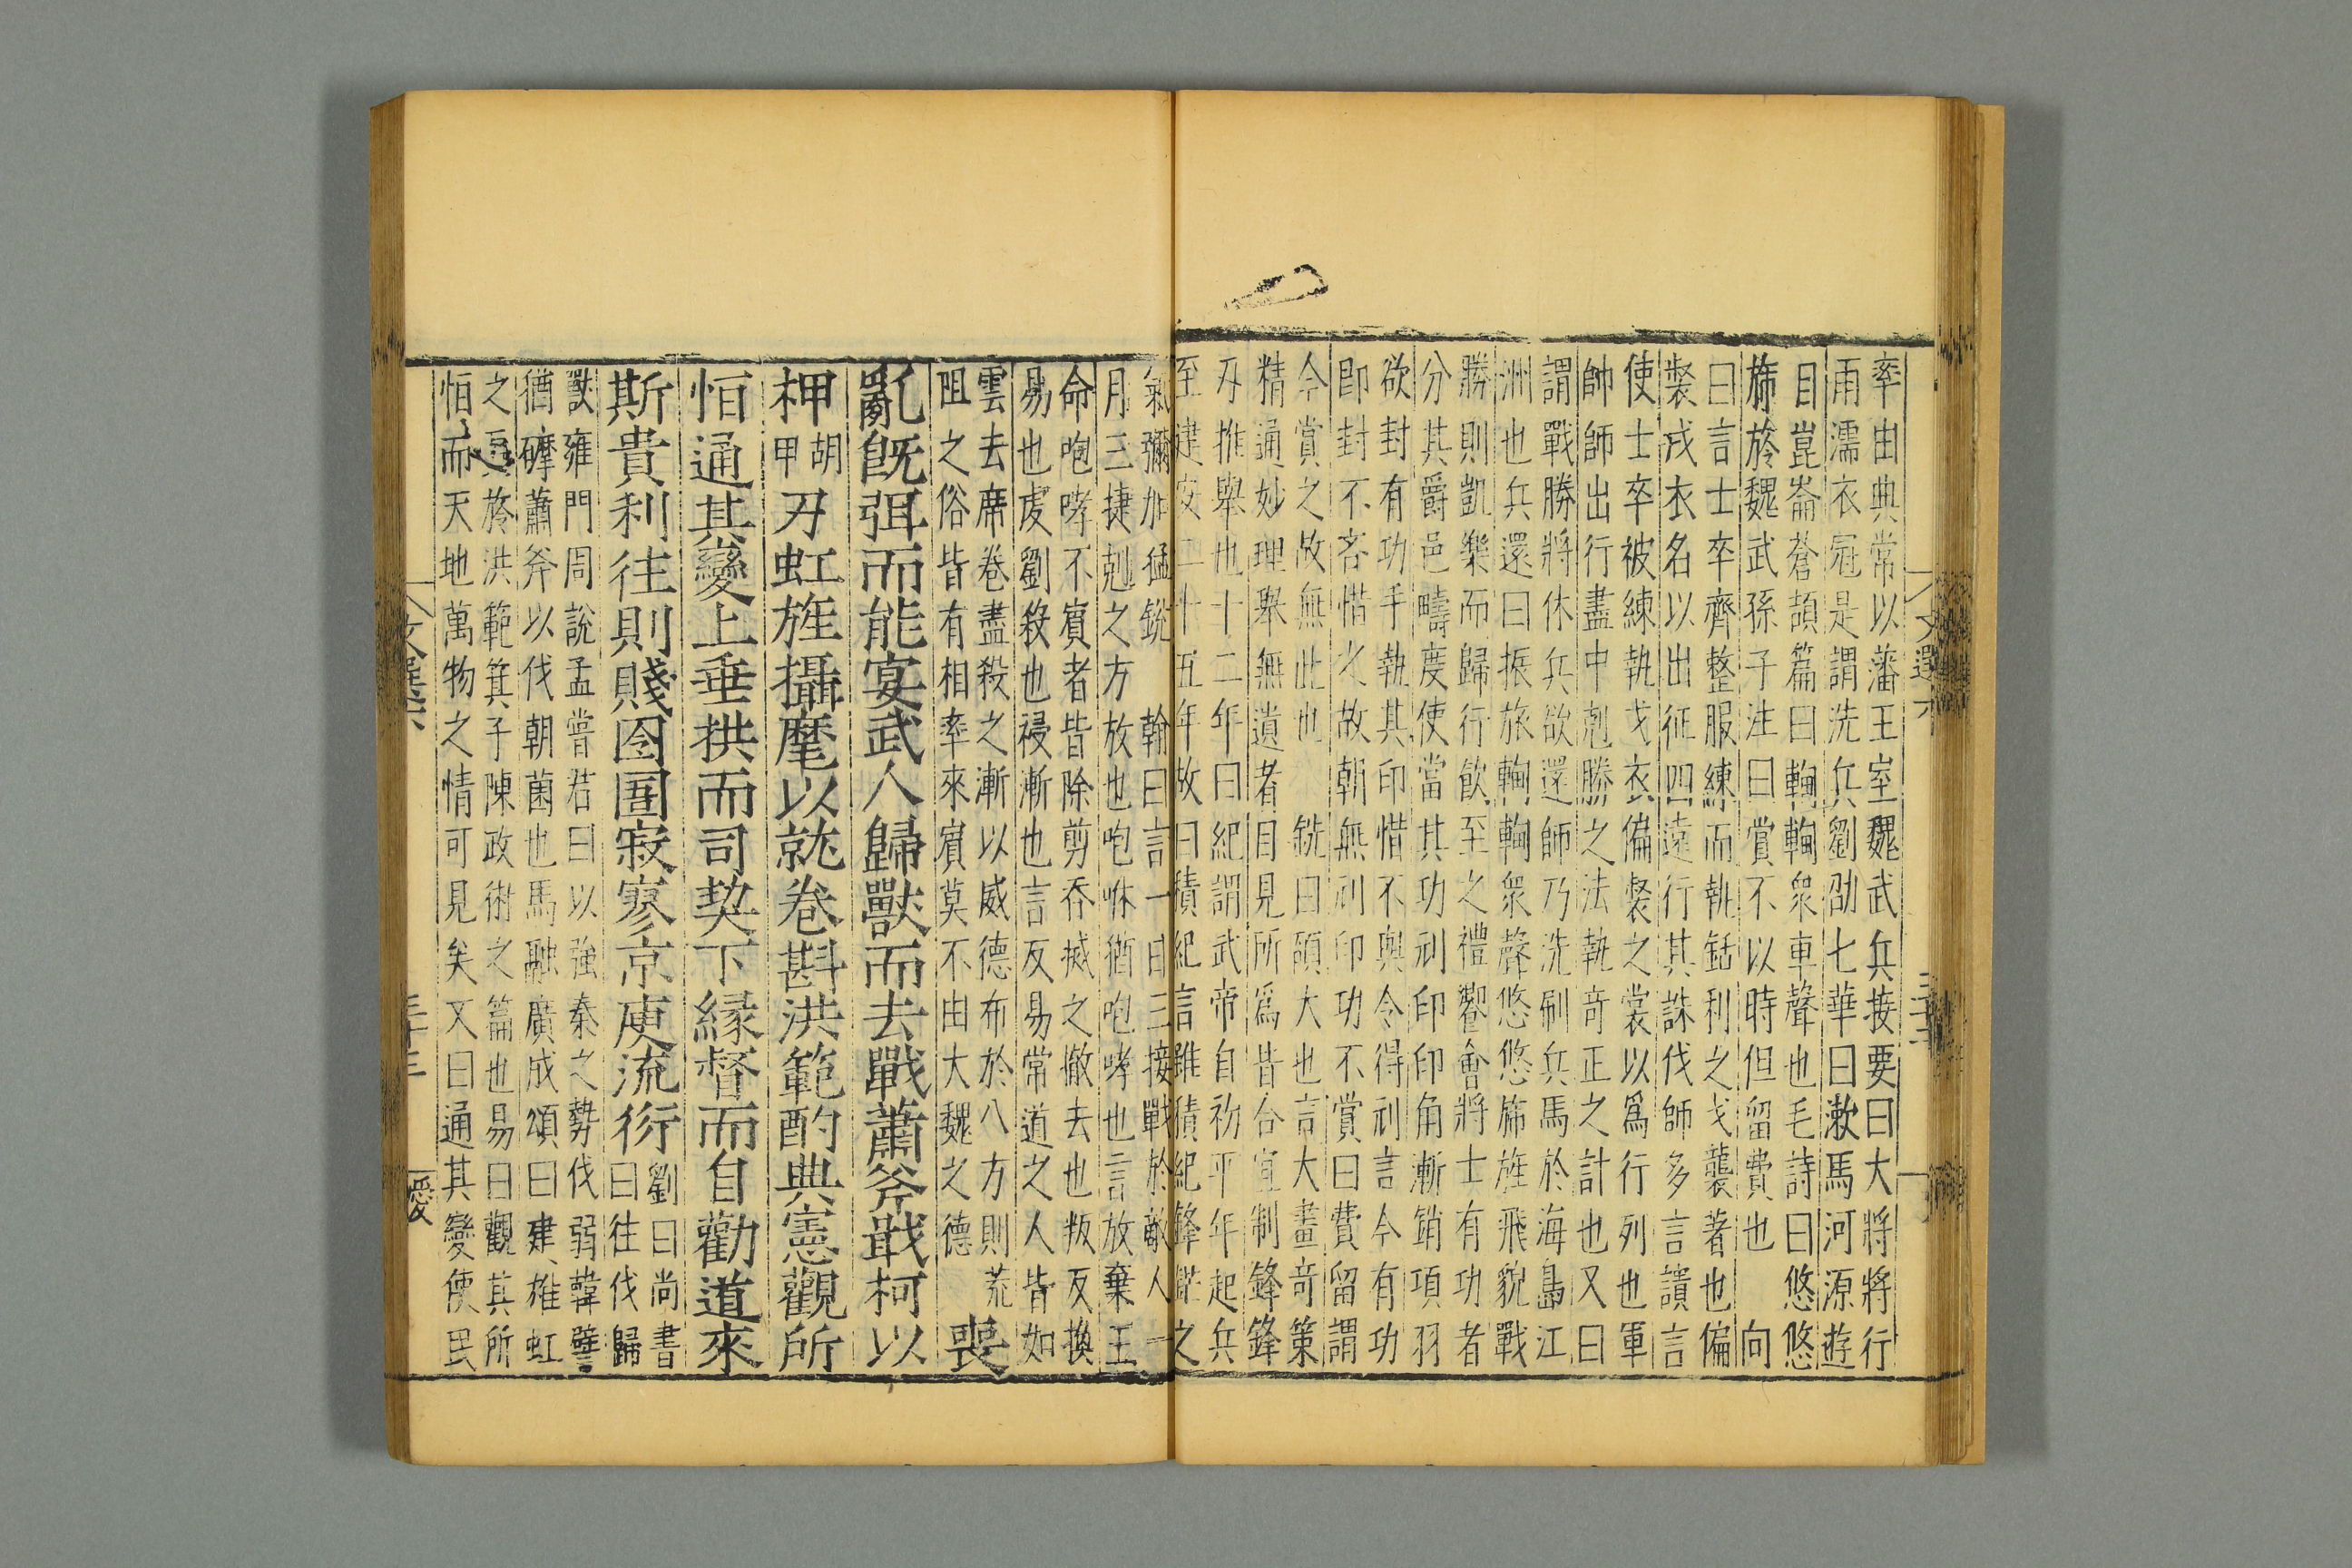 率由典常以藩王室魏武兵接要曰大將將行
雨濡衣冠是謂洗兵劉劭七華曰漱馬河源遊
目崑崙蒼頡篇曰輷輷衆車聲也毛詩曰悠悠
旆旌魏武孫子注曰賞不以時但留費也 向
曰言士卒齊整服練而執銛利之戈襲著也偏
裻戎衣名以出征四遠行其誅伐師多言讀言
使士卒被練執戈衣偏裻之裳以爲行列也軍
帥師出行盡中剋勝之法執奇正之計也又曰
謂戰勝將休兵欲還師乃洗刷兵馬於海島江
洲也兵還曰振旅輷輷衆聲悠悠旆旌飛貌戰
勝則凱樂而歸行飲至之禮饗會將士有功者
分其爵邑疇度使當其功刓印印角漸銷項羽
欲封有功手執其印惜不與令得刓言今有功
卽封不吝惜之故朝無刓印功不賞曰費留謂
今賞之故無此也 銑曰碩大也言大畫奇策
精通妙理舉無遺者目見所爲皆合宜制鋒鋒
刃推舉也十二年曰紀謂武帝自初平年起兵
至建安二十五年故曰積紀言雖積紀鋒鋩之
氣彌加猛銳 翰曰言一日三接戰於敵人一
月三捷剋之方放也咆咻猶咆哮也言放棄王
命咆哮不賓者皆除剪吞滅之徹去也叛反換
易也虔劉殺也祲漸也言反易常道之人皆如
雲去席卷盡殺之漸以威德布於八方則荒
阻之俗皆有相率來賓莫不由大魏之德
喪
亂旣弭而能宴武人歸獸而去戰蕭斧戢柯以
柙胡
甲刃虹旌攝麾以就卷斟洪範酌典憲觀所
恒通其變上垂拱而司契下緣督而自勸道來
斯貴利往則賤囹圄寂寥京庾流衍劉曰尚書
曰往伐歸
獸雍門周說孟嘗君曰以強秦之勢伐弱韓譬
猶磨蕭斧以伐朝菌也馬融廣成頌曰建雄虹
之旌於洪範箕子陳政術之篇也易曰觀其所
恒而天地萬物之情可見矣又曰通其變使民
文選六
三十三